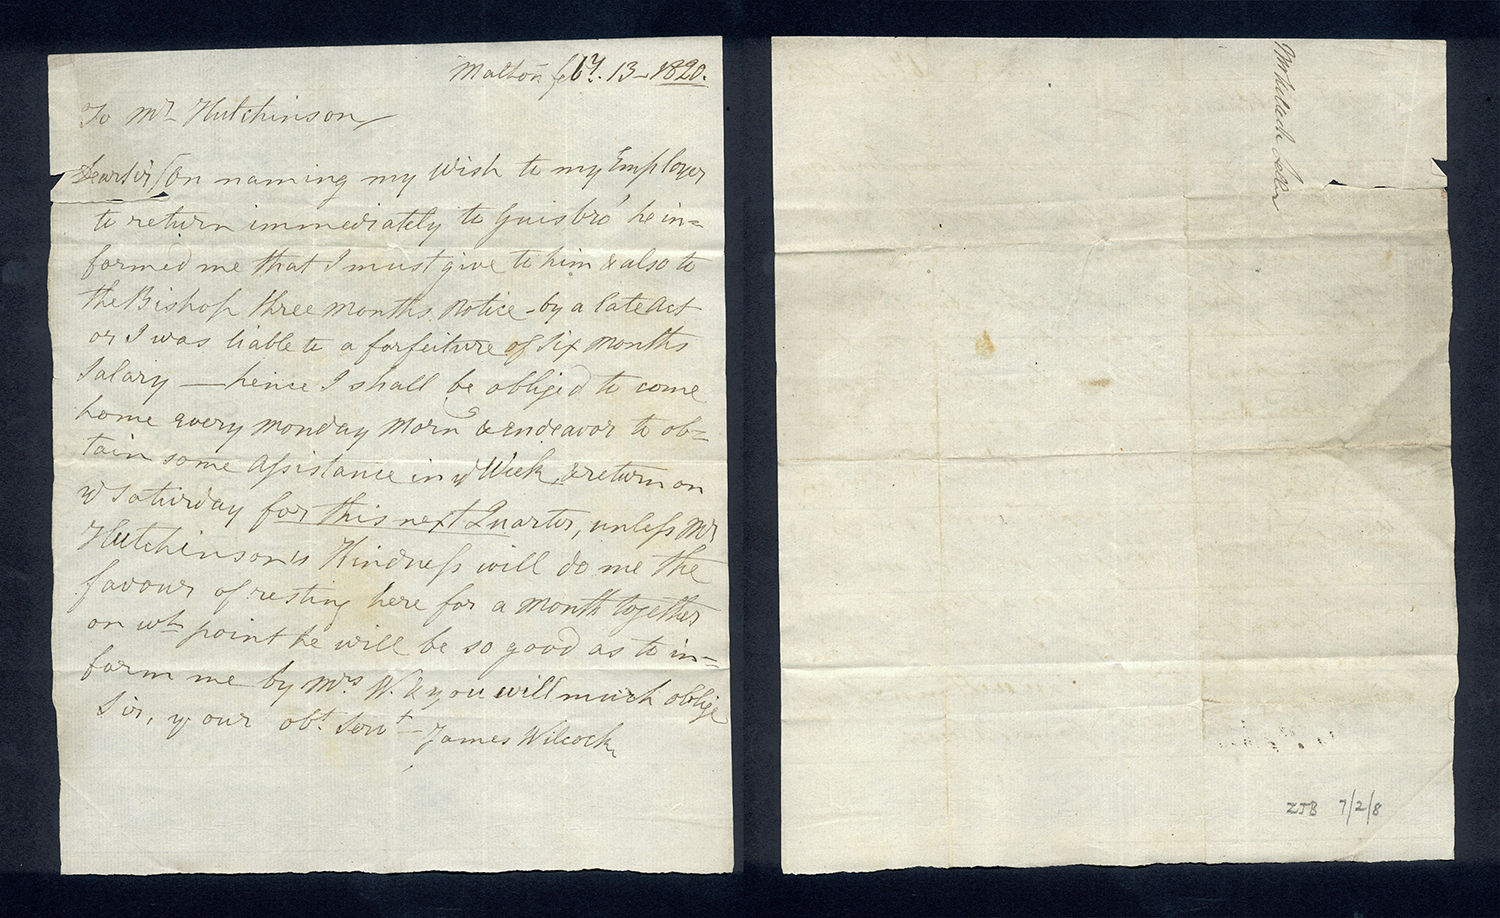 Malton feby. 13 - 1820.
To Mr Hutchinson
Dear Sir / On naming my wish to my Employer
to return immediately to Guisbro' he in=
formed me that I must give to him & also to
the Bishop three Months Notice - by a late Act
or I was liable to a forfeiture of Six Months
Salary — hence I shall be obliged to come
home every Monday Morng & endeavor to ob=
tain some Assistance in ye Week, & return on
ye Saturday for this next Quarter, unless Mr
Hutchinson's Kindness will do me the
favour of resting here for a Month together
on wh point he will be so good as to in=
form me by Mrs W. & you will much oblige
Sir, your obt. Servt - James Wilcock
ZJB 7/2/8